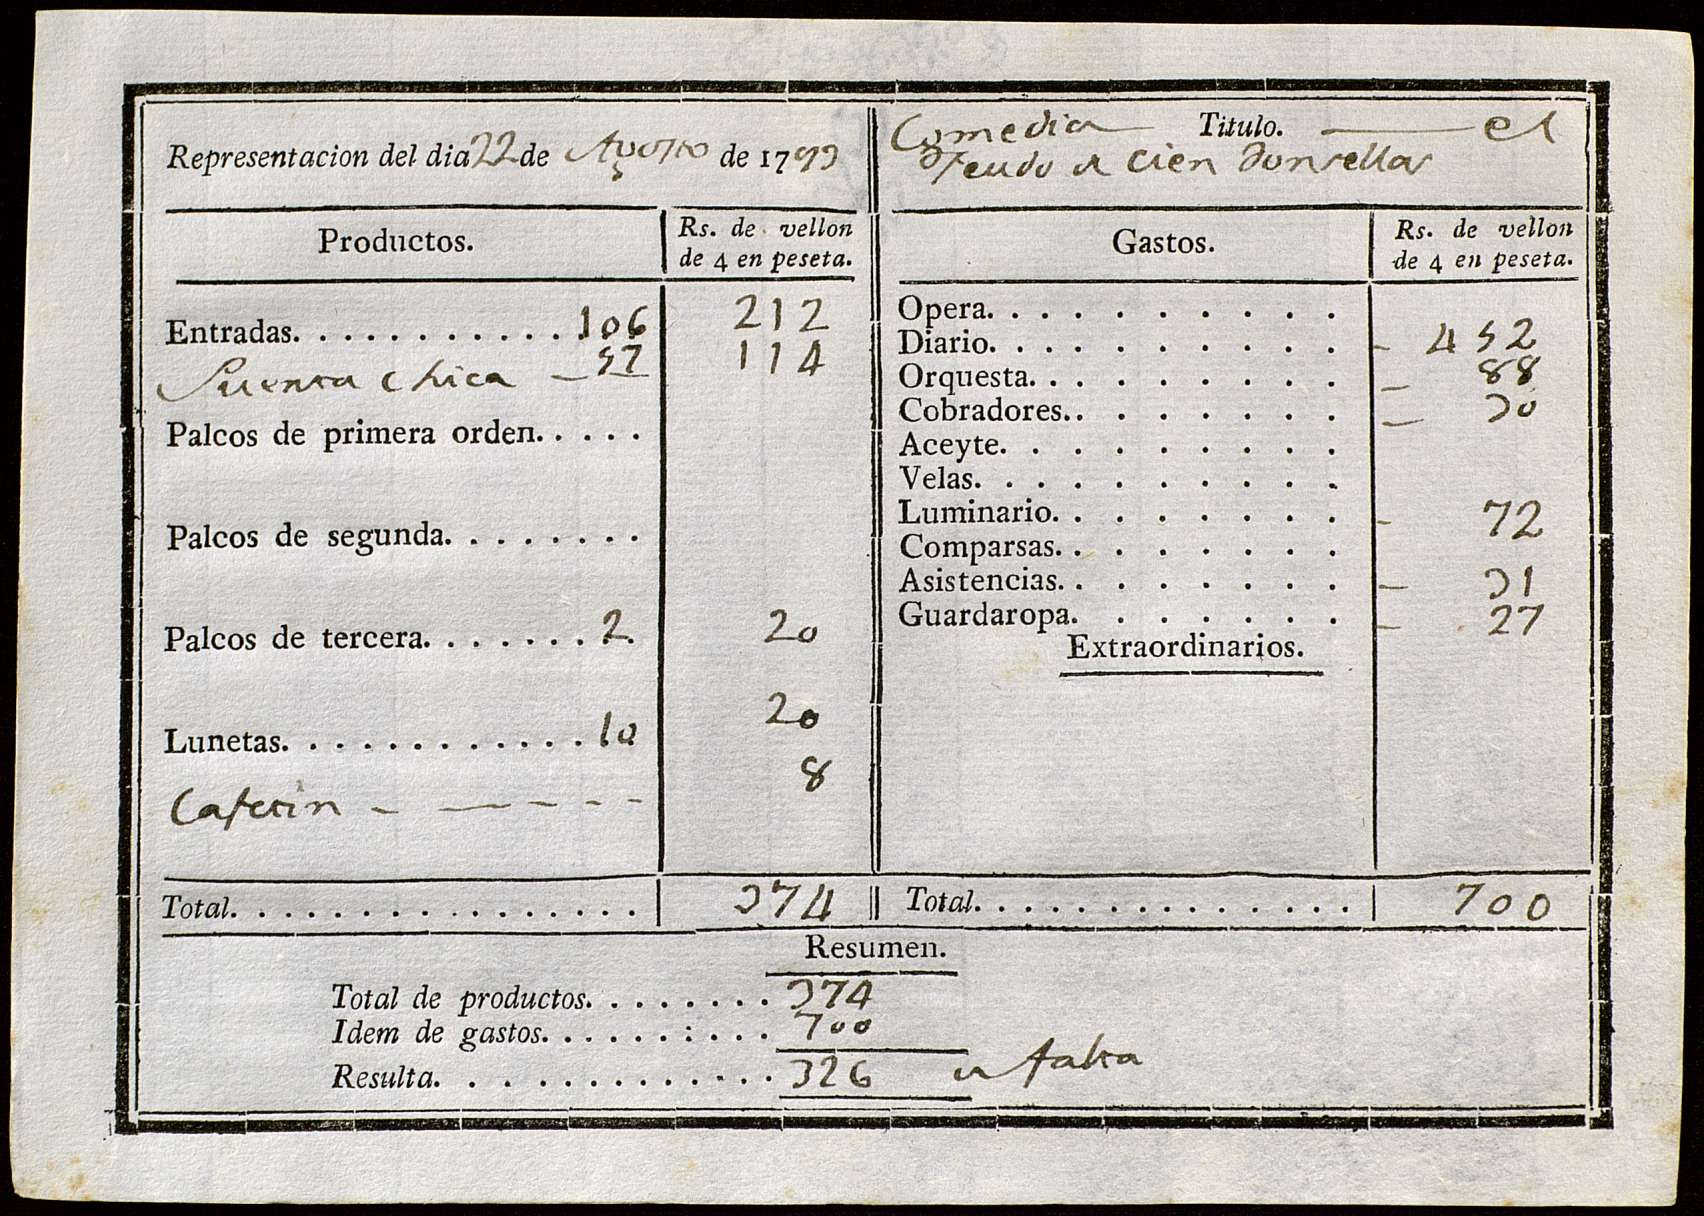 Representacion del dia 22 de Agosto de 1793
Comedia Titulo. el
Feudo de Cien Donsellas
Productos. Rs. de vellon de 4 en peseta.
Entradas. 106 212
Puerta chica 57 114
Palcos de primera orden.
Palcos de segunda.
Palcos de tercera. 2 20
Lunetas. 10 20
Cafetin 8
Total. 374
Gastos. Rs. de vellon de 4 en peseta.
Opera.
Diario. 452
Orquesta. 88
Cobradores. 30
Aceyte.
Velas.
Luminario. 72
Comparsas.
Asistencias. 31
Guardaropa. 27
Extraordinarios.
Total. 700
Resumen.
Total de productos. 374
Idem de gastos. 700
Resulta. 326 de falta